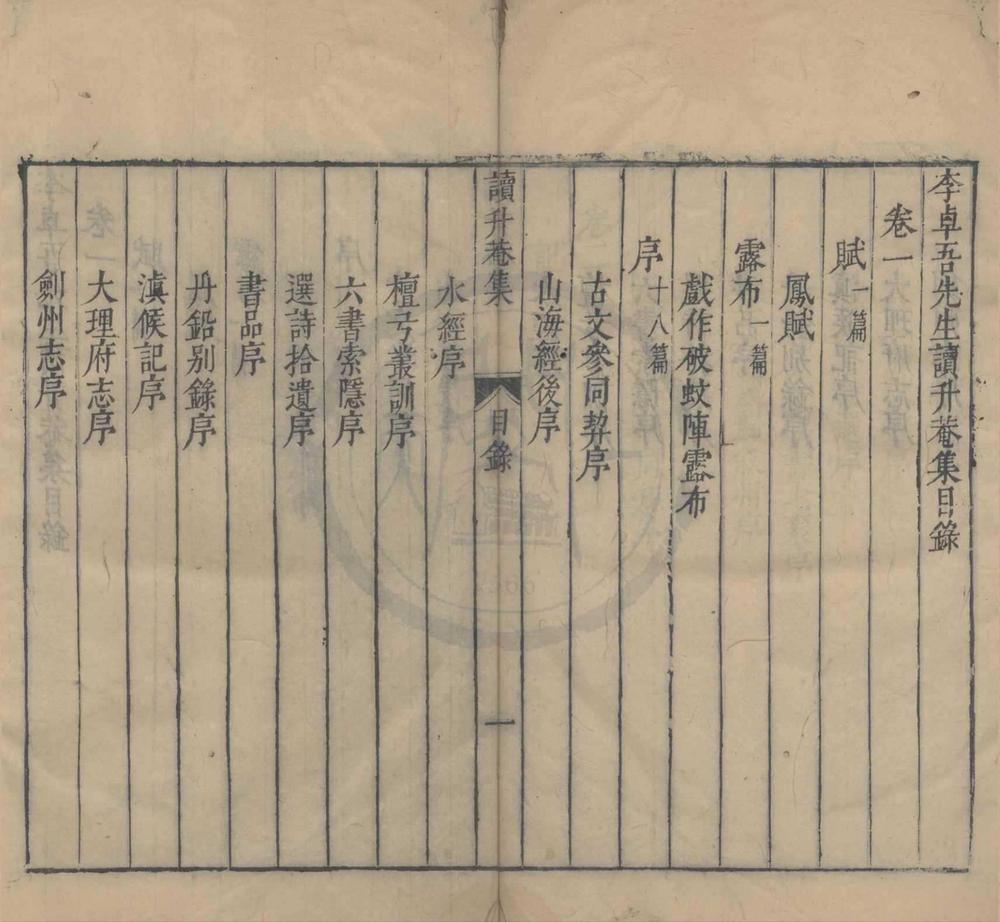 李卓吾先生讀升菴集目錄
卷一
賦一篇
鳳賦
露布一篇
戲作破蚊陣露布
序十八篇
古文參同契序
山海經後序
讀升菴集 目錄 一
水經序
檀弓叢訓序
六書索隱序
選詩拾遺序
書品序
丹鉛别錄序
滇候記序
大理府志序
劍州志序